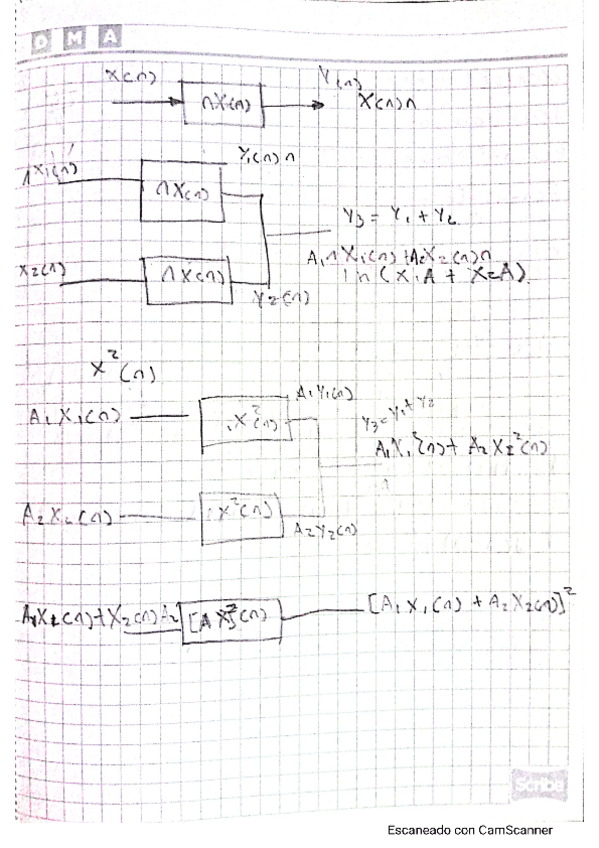 D M A
X(n)
nX(n)
Y(n)
X(n)n
X1(n)
nX(n)
Y1(n)n
Y3 = Y1 + Y2
A1nX1(n)+A2X2(n)n
n(X1A + X2A)
X2(n)
nX(n)
Y2(n)
X²(n)
A1X1(n)
X²(n)
A1Y1(n)
Y3=Y1+Y2
A1X1²(n)+ A2X2²(n)
A2X2(n)
X²(n)
A2Y2(n)
[AX]²(n)
[A1X1(n) + A2X2(n)]²
Scribe
Escaneado con CamScanner